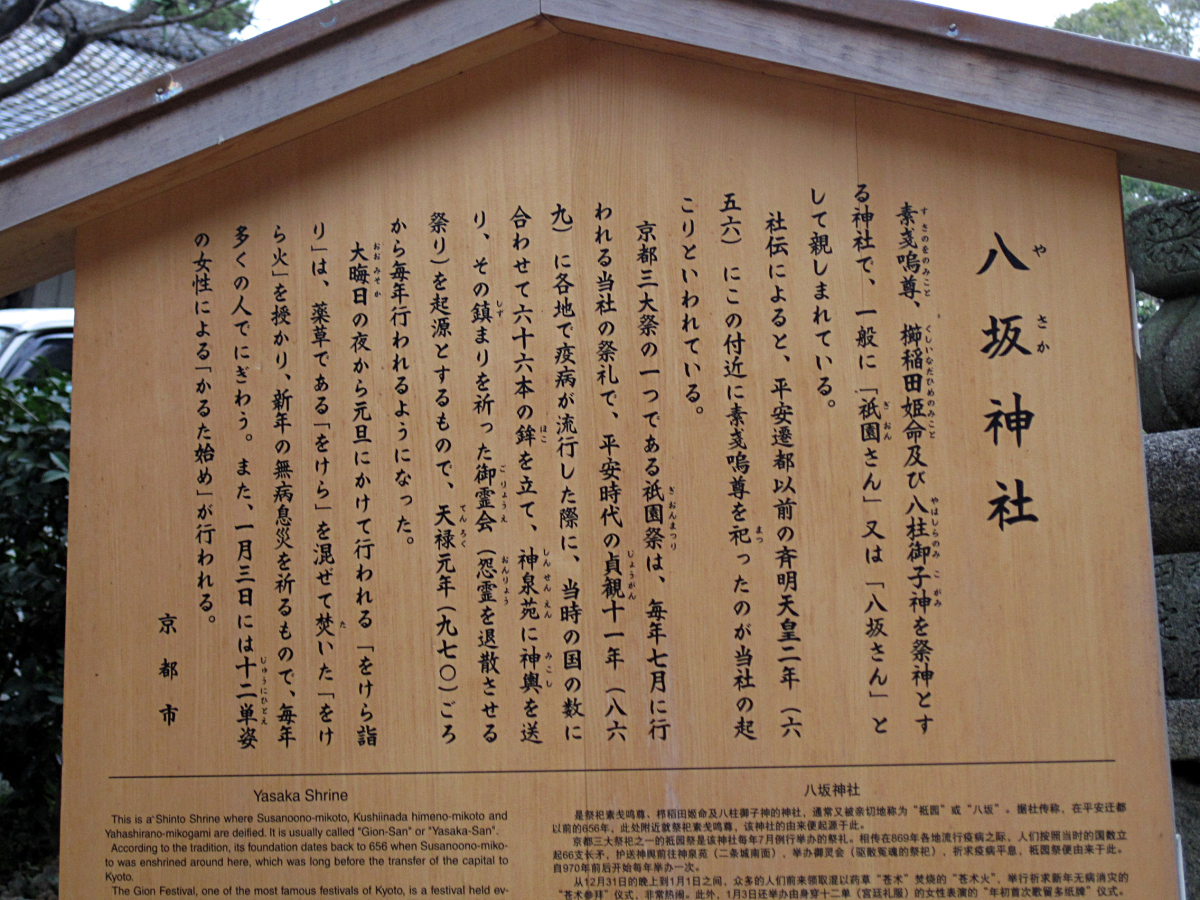 八坂神社
やさか
素戔嗚尊、櫛稲田姫命及び八柱御子神を祭神とす
すさのをのみこと くしいなだひめのみこと やはしらのみこがみ
る神社で、一般に「祇園さん」又は「八坂さん」と
ぎおん
して親しまれている。
社伝によると、平安遷都以前の斉明天皇二年（六
五六）にこの付近に素戔嗚尊を祀ったのが当社の起
まつ
こりといわれている。
京都三大祭の一つである祇園祭は、毎年七月に行
ぎおんまつり
われる当社の祭礼で、平安時代の貞観十一年（八六
じょうがん
九）に各地で疫病が流行した際に、当時の国の数に
合わせて六十六本の鉾を立て、神泉苑に神輿を送
ほこ しんせんえん みこし
り、その鎮まりを祈った御霊会（怨霊を退散させる
しず ごりょうえ おんりょう
祭り）を起源とするもので、天禄元年（九七〇）ごろ
てんろく
から毎年行われるようになった。
大晦日の夜から元旦にかけて行われる「をけら詣
おおみそか
り」は、薬草である「をけら」を混ぜて焚いた「をけ
た
ら火」を授かり、新年の無病息災を祈るもので、毎年
多くの人でにぎわう。また、一月三日には十二単姿
じゅうにひとえ
の女性による「かるた始め」が行われる。
京都市
Yasaka Shrine
This is a Shinto Shrine where Susanoono-mikoto, Kushiinada himeno-mikoto and
Yahashirano-mikogami are deified. It is usually called "Gion-San" or "Yasaka-San".
According to the tradition, its foundation dates back to 656 when Susanoono-miko-
to was enshrined around here, which was long before the transfer of the capital to
Kyoto.
The Gion Festival, one of the most famous festivals of Kyoto, is a festival held ev-
八坂神社
是祭祀素戋鸣尊、栉稻田姬命及八柱御子神的神社，通常又被亲切地称为“祇园”或“八坂”。据社传称，在平安迁都
以前的656年，此处附近就祭祀素戋鸣尊，该神社的由来便起源于此。
京都三大祭祀之一的祇园祭是该神社每年7月例行举办的祭礼。相传在869年各地流行疫病之际，人们按照当时的国数立
起66支长矛，护送神舆前往神泉苑（二条城南面），举办御灵会（驱散冤魂的祭祀），祈求疫病平息，祇园祭便由来于此。
自970年前后开始每年举办一次。
从12月31日的晚上到1月1日之间，众多的人们前来领取混以药草“苍术”焚烧的“苍术火”，举行祈求新年无病消灾的
“苍术参拜”仪式，非常热闹。此外，1月3日还举办由身穿十二单（宫廷礼服）的女性表演的“年初首次歌留多纸牌”仪式。